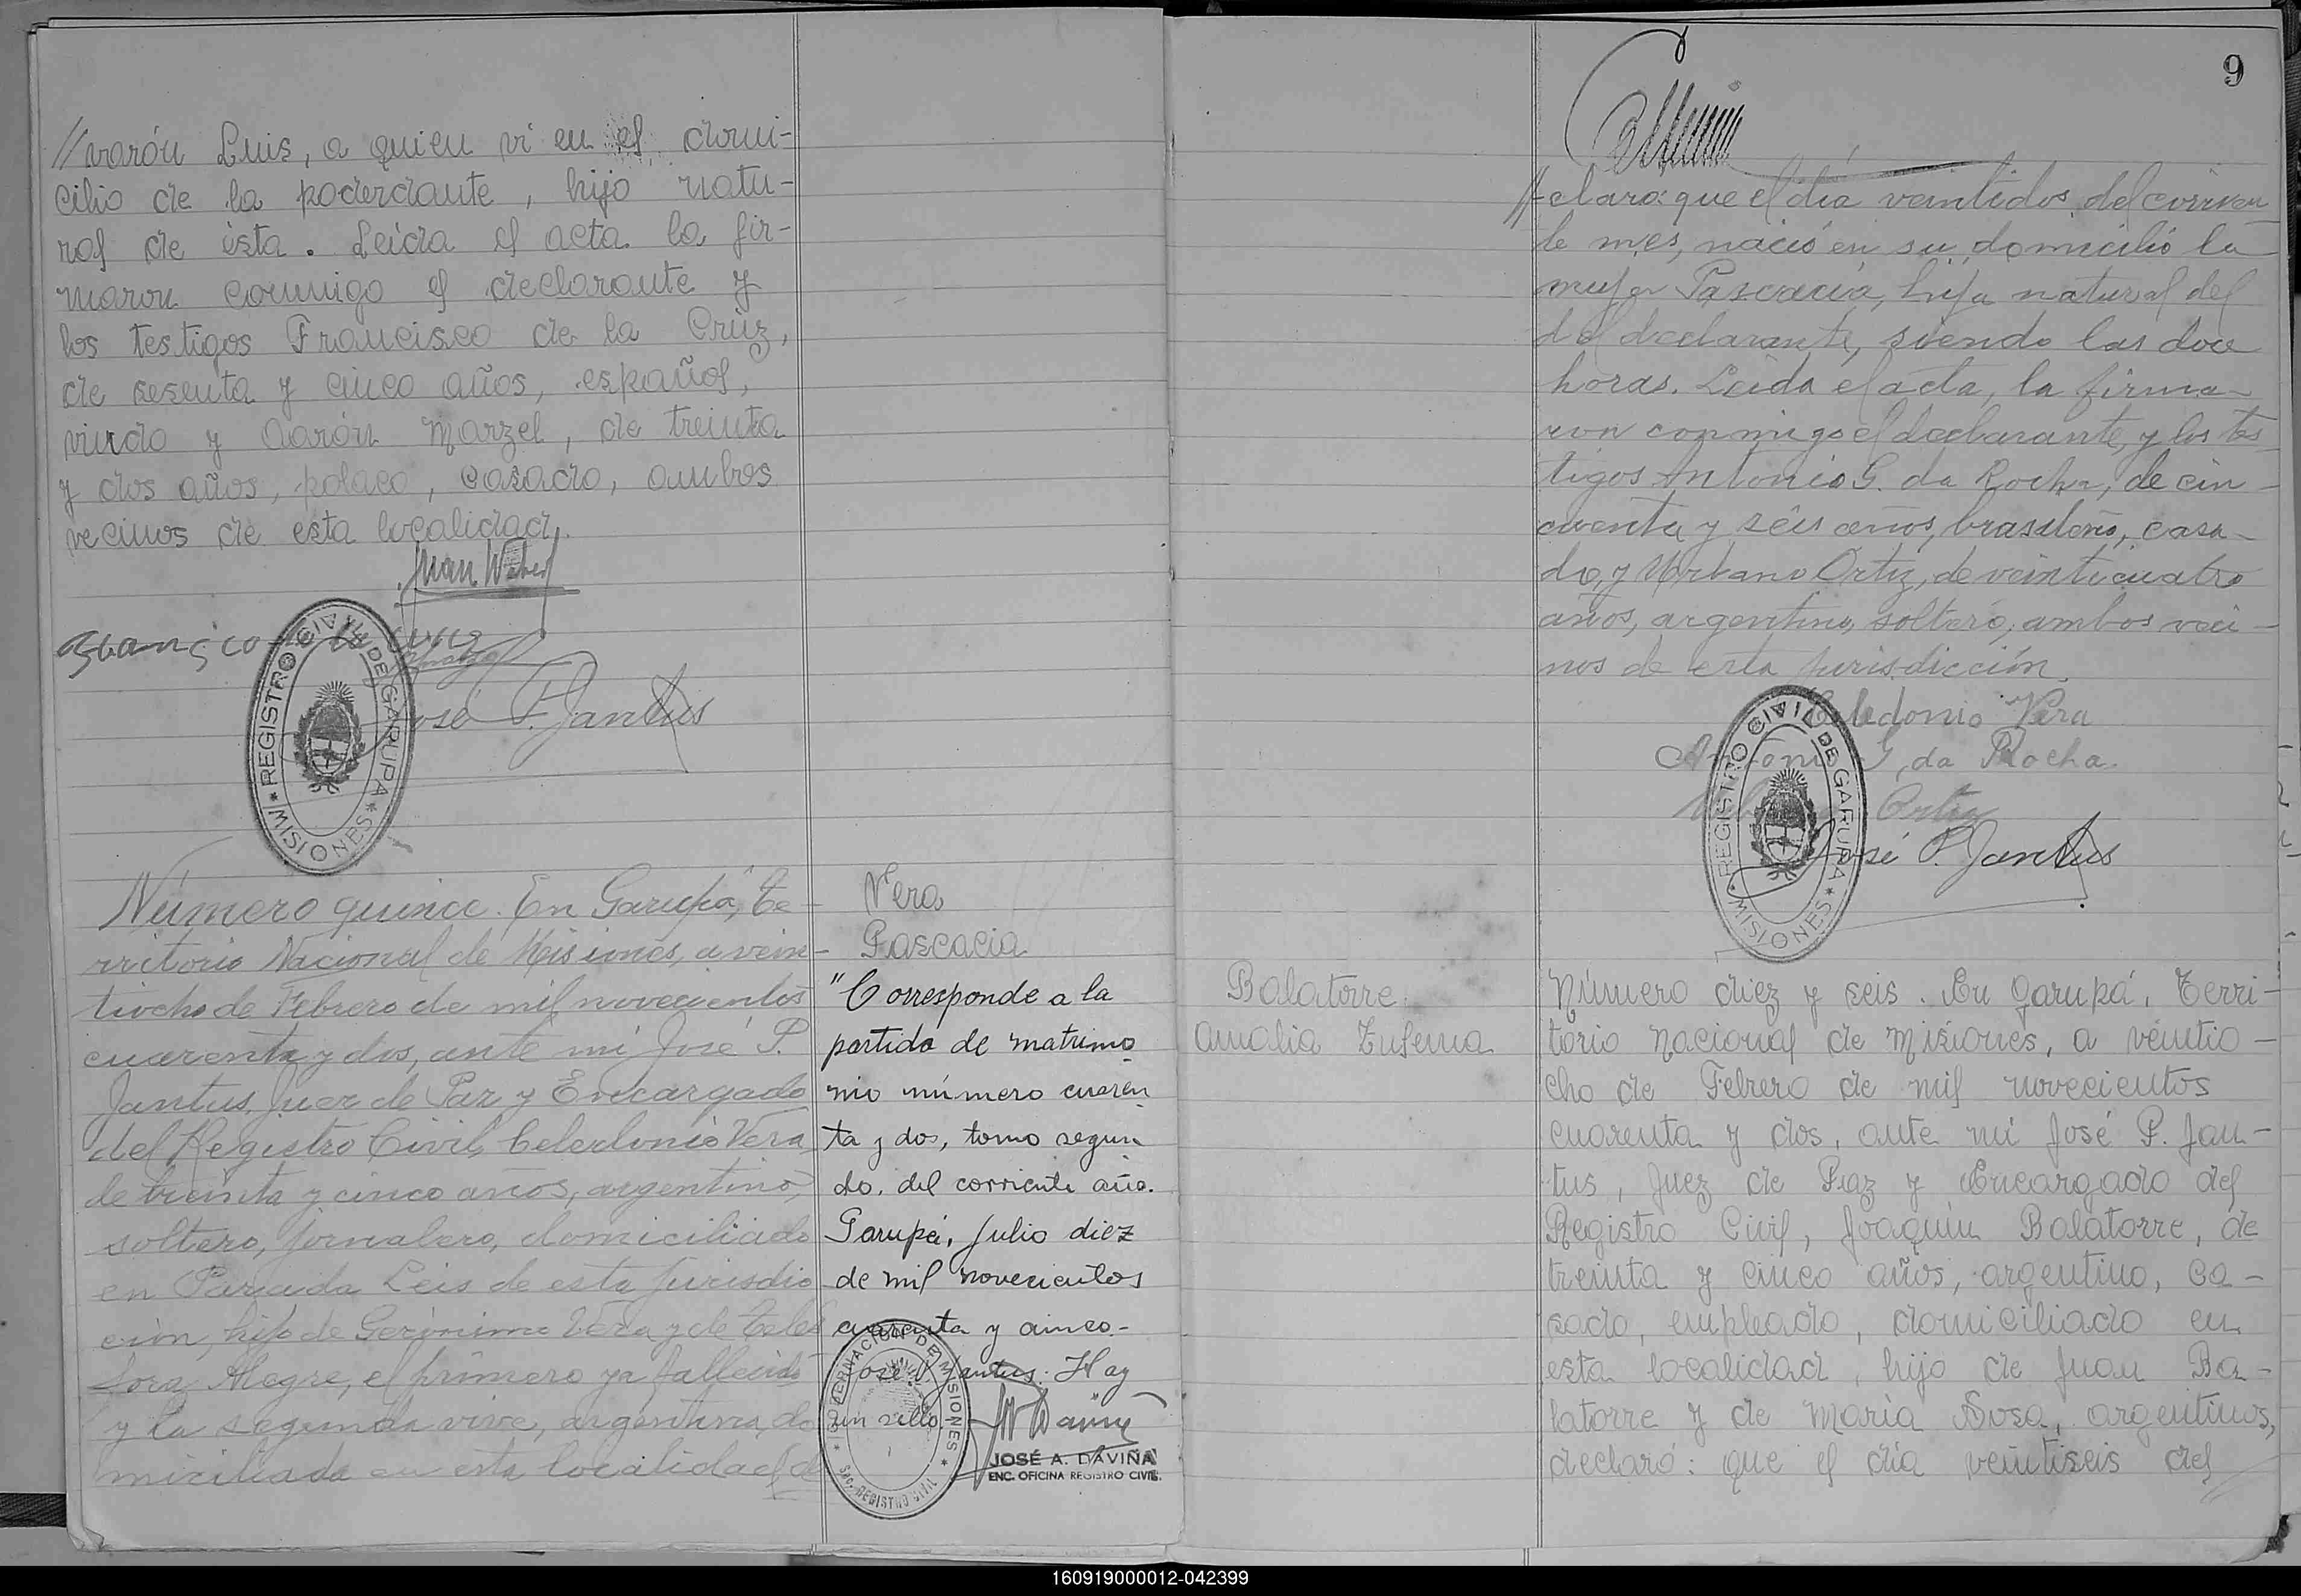 //varón Luis, a quien vi en el domi-
cilio de la poderdante, hijo natu-
ral de ésta. Leída el acta la fir-
maron conmigo el declarante y
los testigos Francisco de la Cruz,
de sesenta y cinco años, español,
viudo y Aarón Marzel, de treinta
y dos años, polaco, casado, ambos
vecinos de esta localidad.
Juan Weber
Francisco de la Cruz
José P. Jantus
REGISTRO CIVIL DE GARUPA * MISIONES *
Número quince. En Garupá, Te-
rritorio Nacional de Misiones, a vein-
tiocho de Febrero de mil novecientos
cuarenta y dos, ante mí José P.
Jantus, Juez de Paz y Encargado
del Registro Civil, Celedonio Vera,
de treinta y cinco años, argentino,
soltero, jornalero, domiciliado
en Parada Leis de esta jurisdic
ción, hijo de Gerónimo Vera y de Teles
fora Alegre, el primero ya fallecido
y la segunda vive, argentina, do
miciliada en esta localidad, de
Vera
Pascacia
"Corresponde a la
partida de matrimo
nio número cuaren
ta y dos, tomo segun
do, del corriente año.
Garupá, Julio diez
de mil novecientos
cuarenta y cinco.-
José P. Jantus: Hay
un sello.
GOBERNACION DE MISIONES * SEC. REGISTRO CIVIL *
JOSÉ A. DAVIÑA
ENC. OFICINA REGISTRO CIVIL
9
//claro: que el día veintidos del corrien
te mes, nació en su domicilio la
mujer Pascacia, hija natural del
del declarante, siendo las doce
horas. Leída el acta, la firma-
ron conmigo el declarante, y los tes
tigos Antonio G. da Rocha, de cin-
cuenta y séis años, brasileño, casa-
do, y Urbano Ortiz, de veinticuatro
años, argentino, soltero, ambos veci-
nos de esta jurisdicción.
Celedonio Vera
Antonio G, da Rocha.
Urbano Ortiz
José P. Jantus
REGISTRO CIVIL DE GARUPA * MISIONES *
Balatorre
Amalia Eufemia
Número diez y seis. En Garupá, Terri-
torio Nacional de Misiones, a veintio-
cho de Febrero de mil novecientos
cuarenta y dos, ante mí José P. Jan-
tus, Juez de Paz y Encargado del
Registro Civil, Joaquín Balatorre, de
treinta y cinco años, argentino, ca-
sado, empleado, domiciliado en
esta localidad, hijo de Juan Ba-
latorre y de María Sosa, argentinos,
declaró: que el día veintiseis del
160919000012-042399